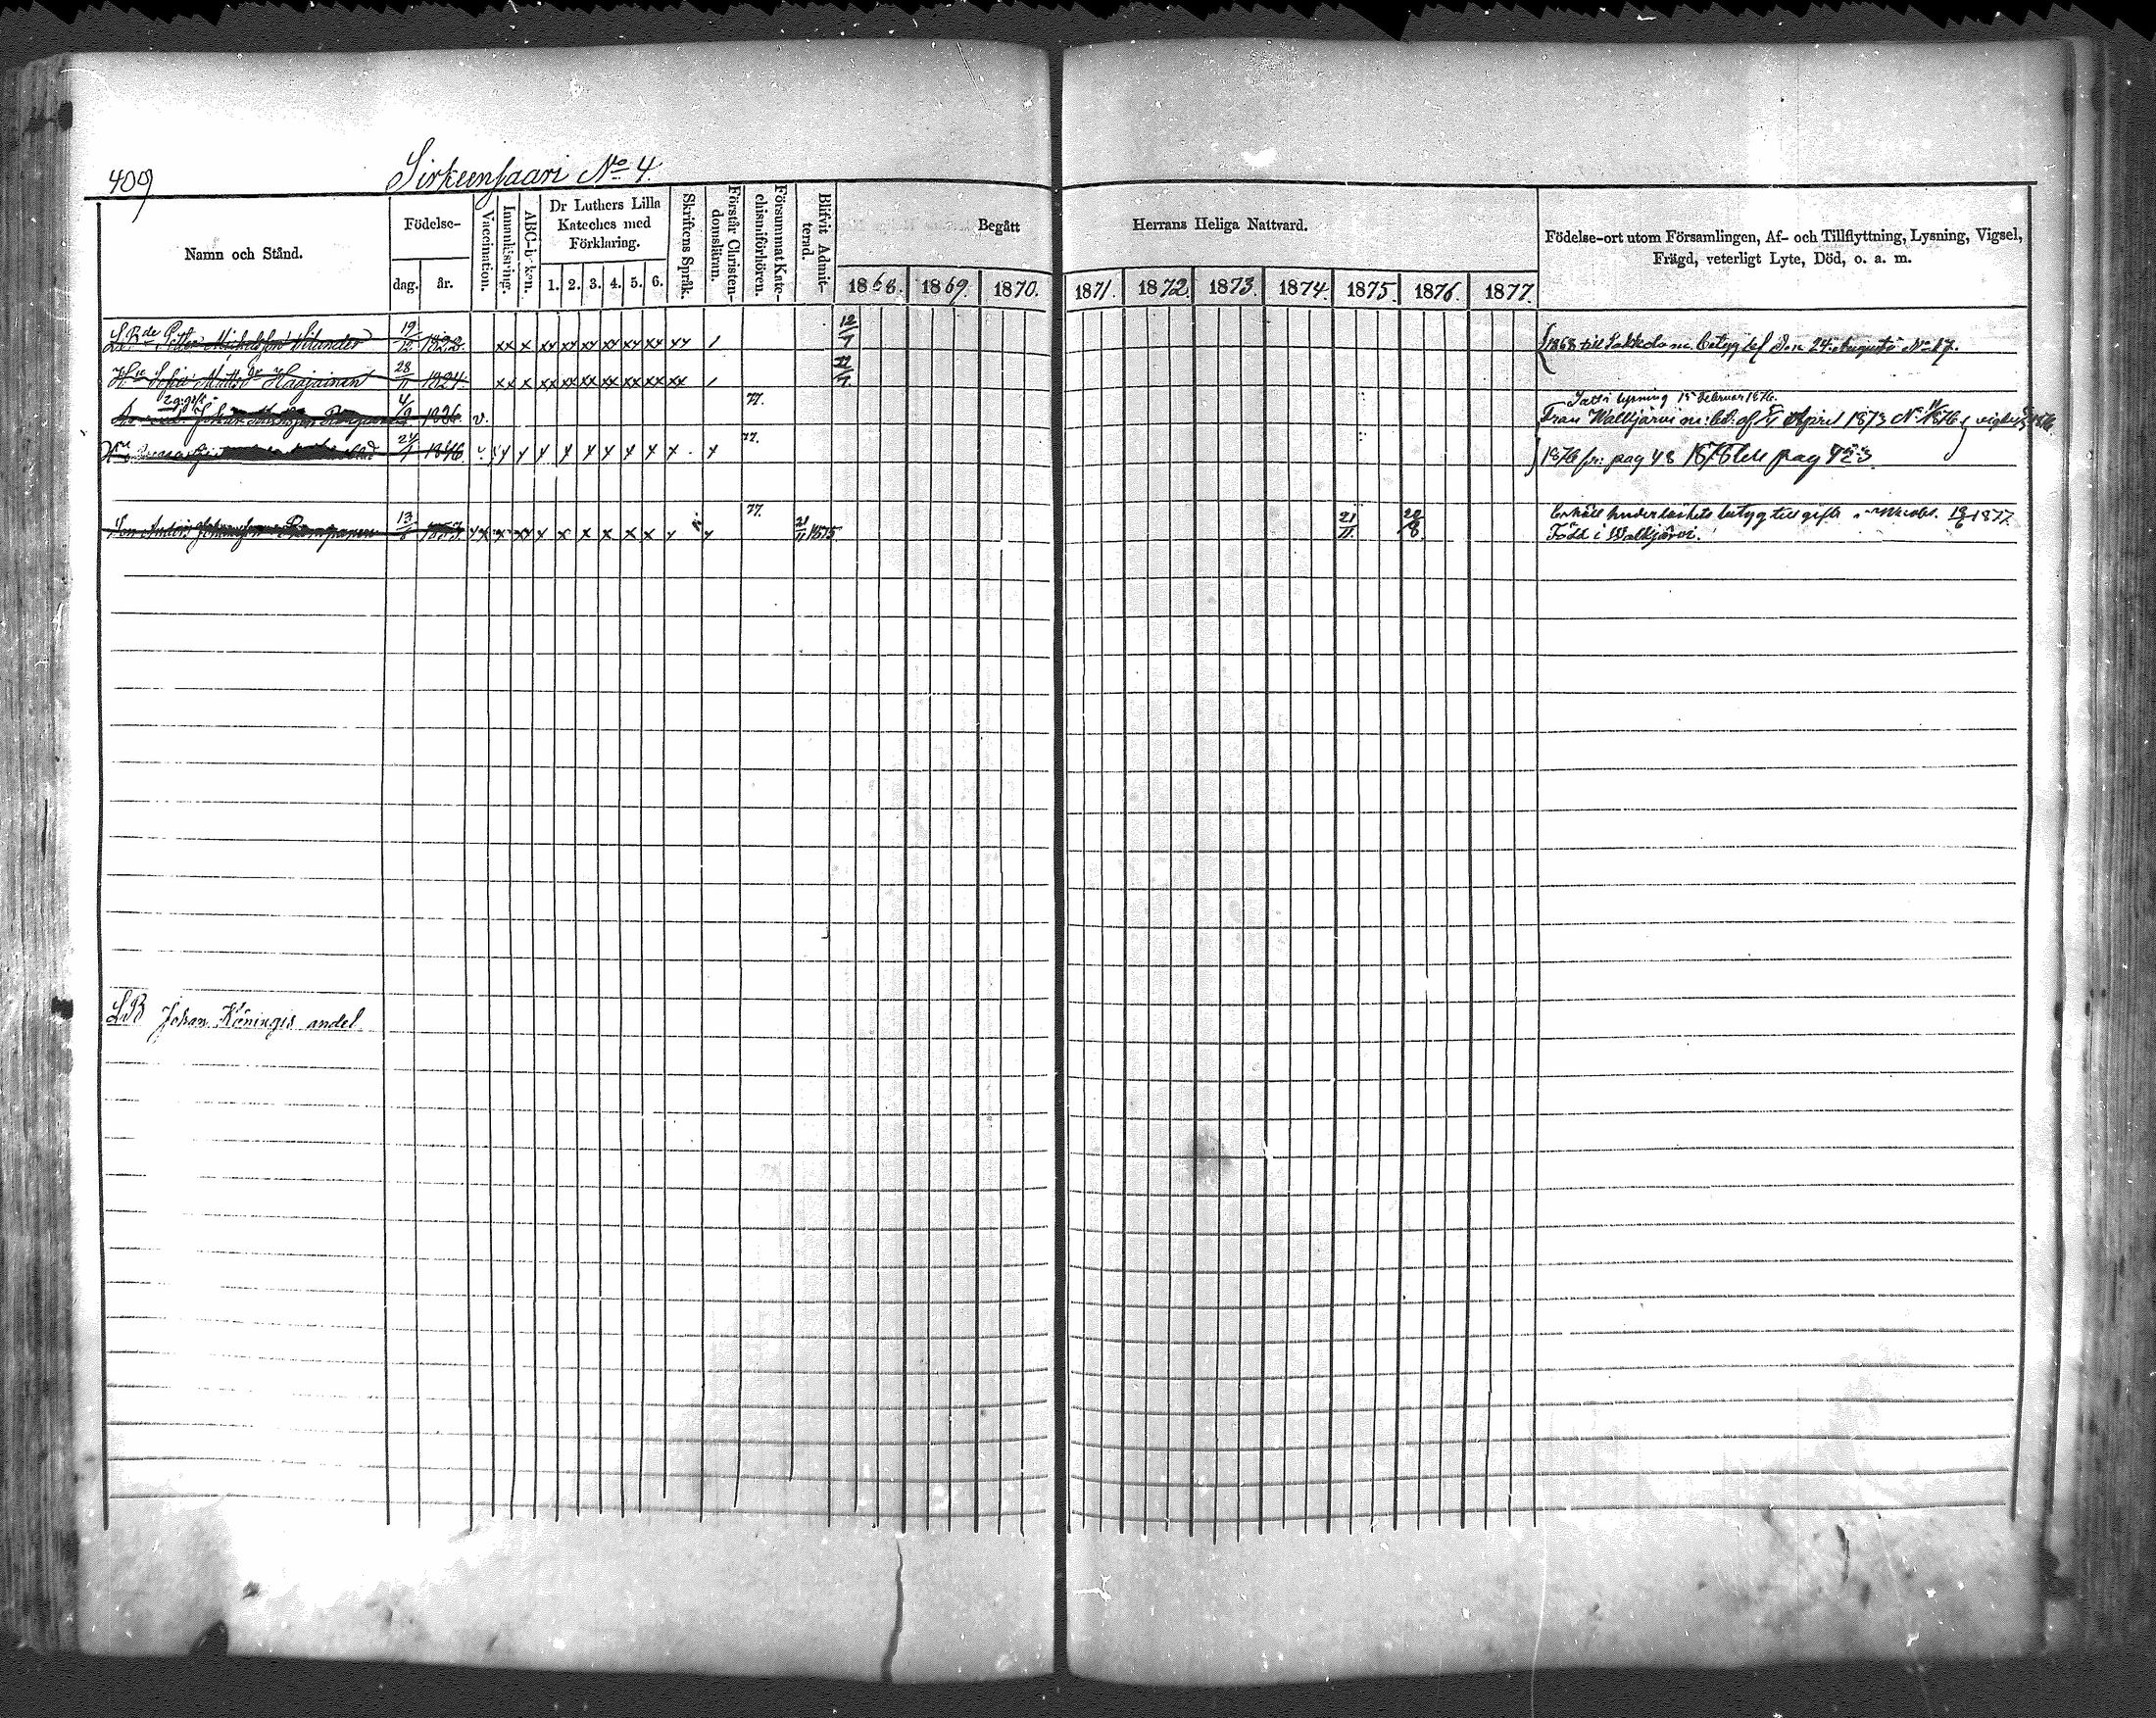 409
Sirkeensaari No 4.
Namn och Stånd.
Födelse-
dag. år.
Vaccination.
Innanläsning.
ABC-boken.
Dr Luthers Lilla Kateches med Förklaring.
1. 2. 3. 4. 5. 6.
Skriftens Språk.
Förstår Christendomsläran.
Försummat Katechismiförhören.
Blifvit Admitterad.
Begått Herrans Heliga Nattvard.
1868. 1869. 1870. 1871. 1872. 1873. 1874. 1875. 1876. 1877.
Födelse-ort utom Församlingen, Af- och Tillflyttning, Lysning, Vigsel,
Frägd, veterligt Lyte, Död, o. a. m.
Petter Michelsson Silander 19/12 1822. xx x xx xx xx xx xx xx xx / 12/7 1868 till Sakkola m. betyg af den 24 Augusti No 17.
Hu Sofia Matts dr Haajainen 28/11 1824. xx x xx xx xx xx xx xx xx /
2 g. gift
Johan 4/9 1826. v. 77. lysning 15 Februar 1876.
Från Walkjärvi m. bet. af April 1873 No
Hu 24/4 1846 77. 1876 fr. pag 48 1878 till pag 423
Son Anders Johansson 13/6 1853 77. 21/11 1875 21/11 22/8 Erhöll hinderlöshets betyg till gifte 1877.
Född i Walkjärvi.
LB Johan Köningis andel